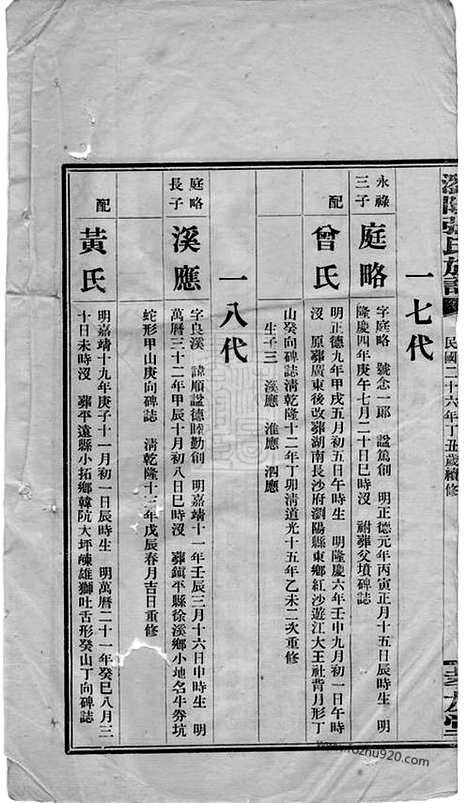 民國二十六年丁丑歲續修
一七代
永祿
三子
庭略
字庭略 號念一郎 諡篤創 明正德元年丙寅正月十五日辰時生 明
隆慶四年庚午七月二十日巳時沒 祔葬父墳碑誌
配
曾氏
明正德九年甲戌五月初五日午時生 明隆慶六年壬申九月初一日午時
沒 原葬廣東後改葬湖南長沙府瀏陽縣東鄉紅沙遊江大王社背月形丁
山癸向碑誌清乾隆十二年丁卯清道光十五年乙未二次重修
生子三 溪應 淮應 泗應
一八代
庭略
長子
溪應
字良溪 諱順諡德睦勤創 明嘉靖十一年壬辰三月十六日申時生 明
萬曆三十二年甲辰十月初八日巳時沒 葬鎮平縣徐溪鄉小地名牛劵坑
蛇形甲山庚向碑誌 清乾隆十三年戊辰春月吉日重修
配
黃氏
明嘉靖十九年庚子十一月初一日辰時生 明萬曆二十一年癸巳八月三
十日未時沒 葬平遠縣小拓鄉韓阬大坪雄獅吐舌形癸山丁向碑誌
www.fozhu920.com